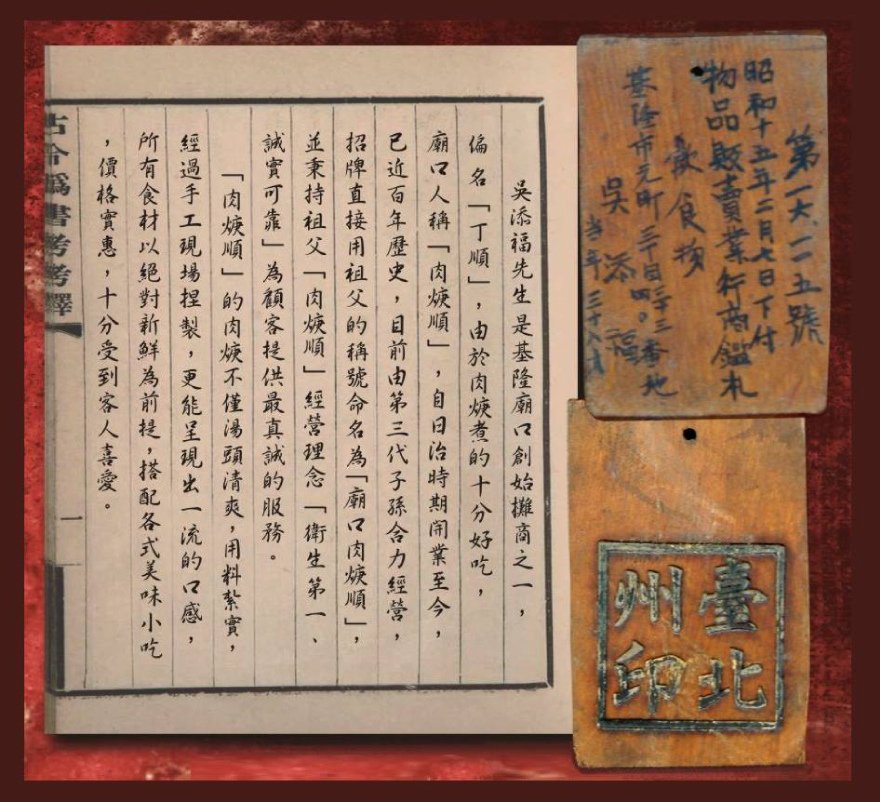 吳添福先生是基隆廟口創始攤商之一，
偏名「丁順」，由於肉焿煮的十分好吃，
廟口人稱「肉焿順」，自日治時期開業至今，
已近百年歷史，目前由第三代子孫合力經營，
招牌直接用祖父的稱號命名為「廟口肉焿順」，
並秉持祖父「肉焿順」經營理念「衛生第一、
誠實可靠」為顧客提供最真誠的服務。
「肉焿順」的肉焿不僅湯頭清爽，用料紮實，
經過手工現場捏製，更能呈現出一流的口感，
所有食材以絕對新鮮為前提，搭配各式美味小吃
，價格實惠，十分受到客人喜愛。
古今僞書考考釋
一
第一六、一一五號
昭和十五年二月七日下付
物品販賣業行商鑑札
飲食物
基隆市元町 番地
吳添福
臺北
州印